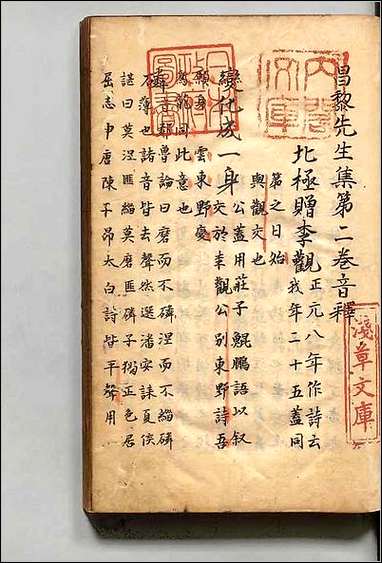 昌黎先生集第二卷音釋
北極贈李觀
正元八年作詩云
我年二十五蓋同
第之日始
與觀交也
變化成一身
公蓋用莊子鯤鵬語以叙
交於李觀公别東野詩吾
願身雲東野變
為龍同此意也
磷
魯論曰磨而不磷涅而不緇磷
薄也諸音皆去聲然選潘安誄夏侯
諶曰莫涅匪緇莫磨匪磷子㧑正色居
屈志申唐陳子昂太白詩皆平聲用
内閣文庫
日本政府圖書
淺草文庫